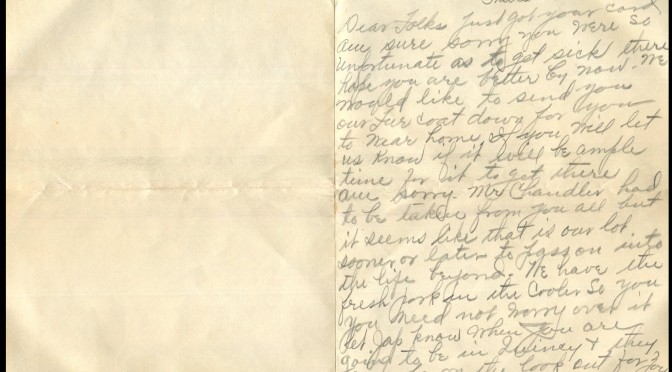 Dear Folks Just got your card
am sure sorry you were so
unfortunate as to get sick there
hope you are better by now. We
would like to send you
our Fur coat down for you
to wear home. If you will let
us know if it will be ample
time for it to get there
am sorry. Mr Chandler had
to be taken from you all but
it seems like that is our lot.
sooner or later to pass on into
the life beyond. We have the
fresh pork in the Cooler So you
you need not worry over it
let Jap know when you are
going to be in Quincy & they
on the look out for